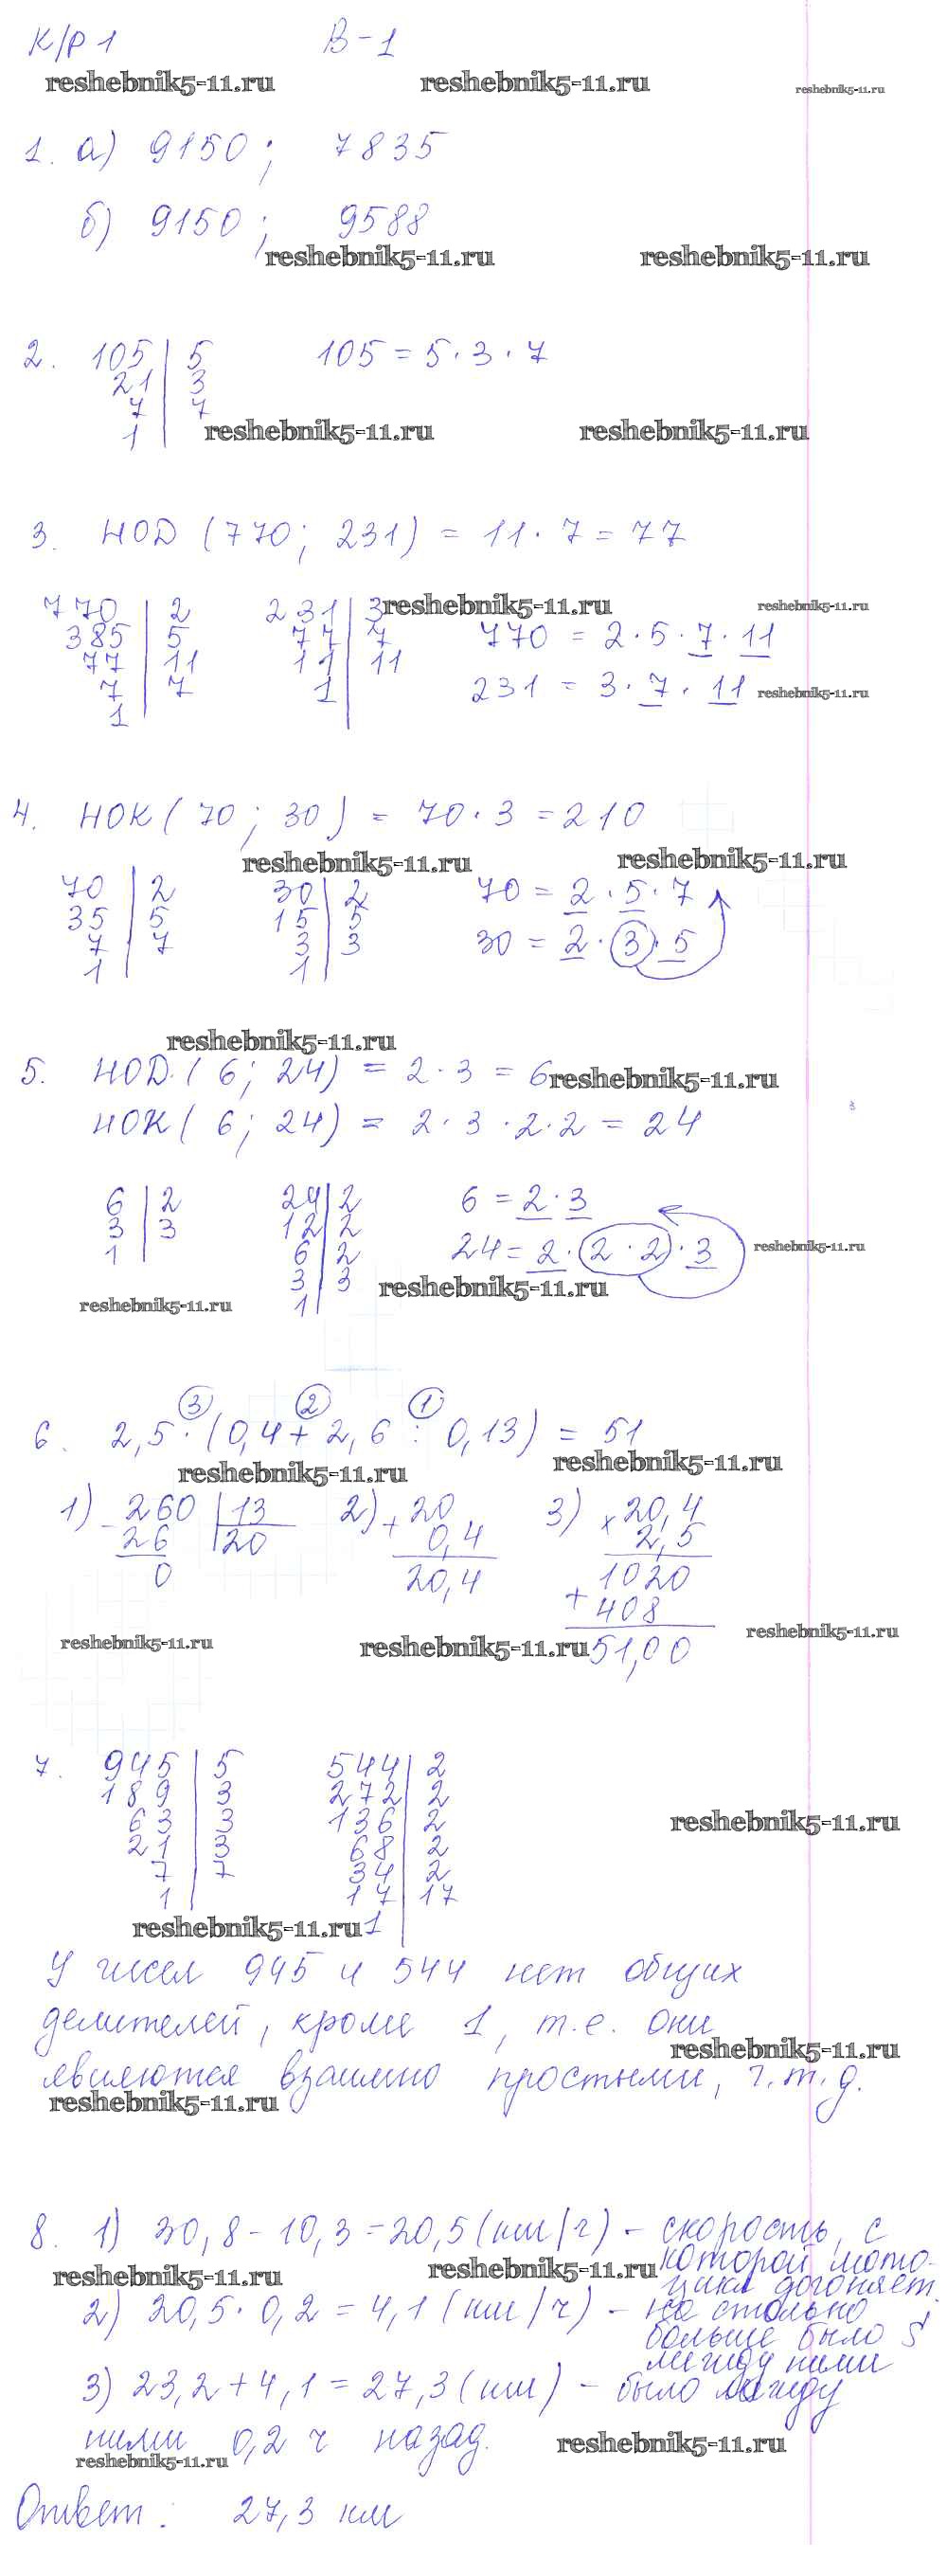 К/Р 1 В-1
reshebnik5-11.ru reshebnik5-11.ru reshebnik5-11.ru
1. а) 9150; 7835
б) 9150; 9588
reshebnik5-11.ru reshebnik5-11.ru
2. 105 | 5 105 = 5 · 3 · 7
21 | 3
7 | 7
1 |
reshebnik5-11.ru reshebnik5-11.ru
3. НОД (770; 231) = 11 · 7 = 77
reshebnik5-11.ru reshebnik5-11.ru
770 | 2 231 | 3
385 | 5 77 | 7 770 = 2 · 5 · 7 · 11
77 | 11 11 | 11
7 | 7 1 | 231 = 3 · 7 · 11 reshebnik5-11.ru
1 |
4. НОК (70; 30) = 70 · 3 = 210
reshebnik5-11.ru reshebnik5-11.ru
70 | 2 30 | 2 70 = 2 · 5 · 7
35 | 5 15 | 5
7 | 7 3 | 3 30 = 2 · 3 · 5
1 | 1 |
reshebnik5-11.ru
5. НОД (6; 24) = 2 · 3 = 6 reshebnik5-11.ru
НОК (6; 24) = 2 · 3 · 2 · 2 = 24
6 | 2 24 | 2 6 = 2 · 3
3 | 3 12 | 2
1 | 6 | 2 24 = 2 · (2 · 2) · 3 reshebnik5-11.ru
3 | 3 reshebnik5-11.ru
reshebnik5-11.ru 1 |
3 2 1
6. 2,5 · (0,4 + 2,6 : 0,13) = 51
reshebnik5-11.ru reshebnik5-11.ru
1) - 260 | 13 2) + 20 3) × 20,4
26 | 20 0,4 2,5
0 20,4 1020
+ 408
reshebnik5-11.ru reshebnik5-11.ru 51,00 reshebnik5-11.ru
7. 945 | 5 544 | 2
189 | 3 272 | 2
63 | 3 136 | 2 reshebnik5-11.ru
21 | 3 68 | 2
7 | 7 34 | 2
1 | 17 | 17
reshebnik5-11.ru 1 |
У чисел 945 и 544 нет общих
делителей, кроме 1, т.е. они
reshebnik5-11.ru
являются взаимно простыми, ч.т.д.
reshebnik5-11.ru
8. 1) 30,8 - 10,3 = 20,5 (км/ч) - скорость, с
которой мото-
reshebnik5-11.ru reshebnik5-11.ru
цикл догоняет.
2) 20,5 · 0,2 = 4,1 (км/ч) - на столько
больше было S
между ними
3) 23,2 + 4,1 = 27,3 (км) - было между
ними 0,2 ч назад.
reshebnik5-11.ru reshebnik5-11.ru
Ответ: 27,3 км